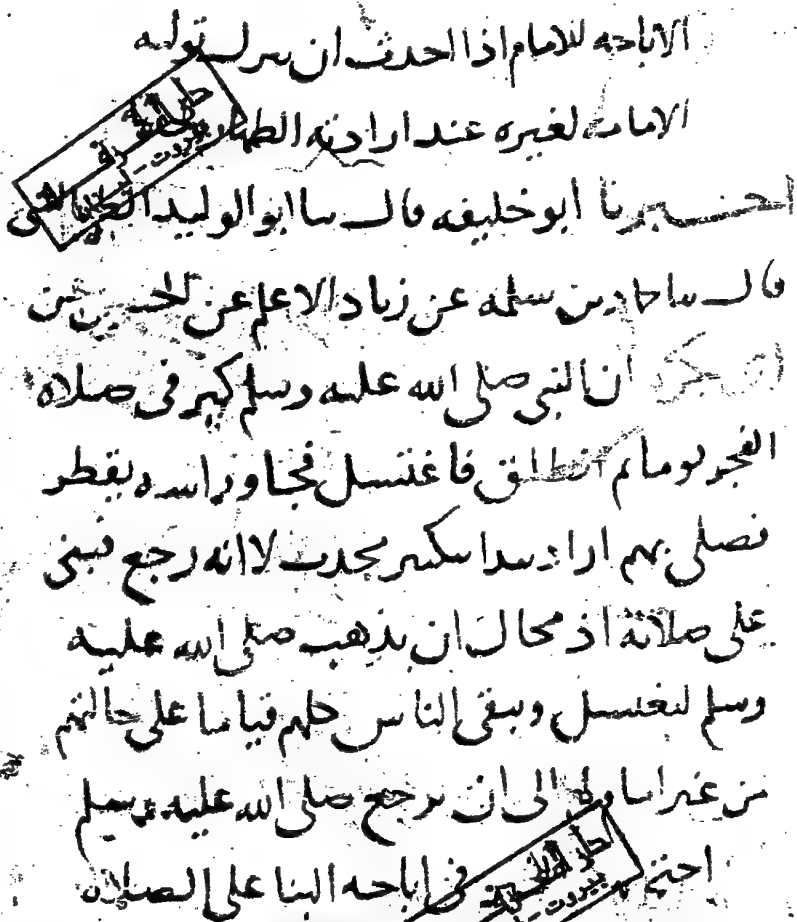 الاباحه للامام اذا احدث ان يترك توليه
الامامه لغيره عند ارادته الطهاره
اخبرنا أبو خليفه قال ثنا ابو الوليد الطيالسى
قال ثنا حماد بن سلمه عن زياد الاعلم عن الحسن عن
ابى بكره ان النبى صلى الله عليه وسلم كبر فى صلاه
الفجر يوما ثم انطلق فاغتسل فجا وراسه يقطر
فصلى بهم اراد بيدا بتكبير محدث لا انه رجع فبنى
على صلاته اذ محال ان يذهب صلى الله عليه
وسلم ليغتسل ويبقى الناس كلهم قياما على حالتهم
من غير امام الى ان يرجع صلى الله عليه وسلم
احتج فى اباحه البنا على الصلاه